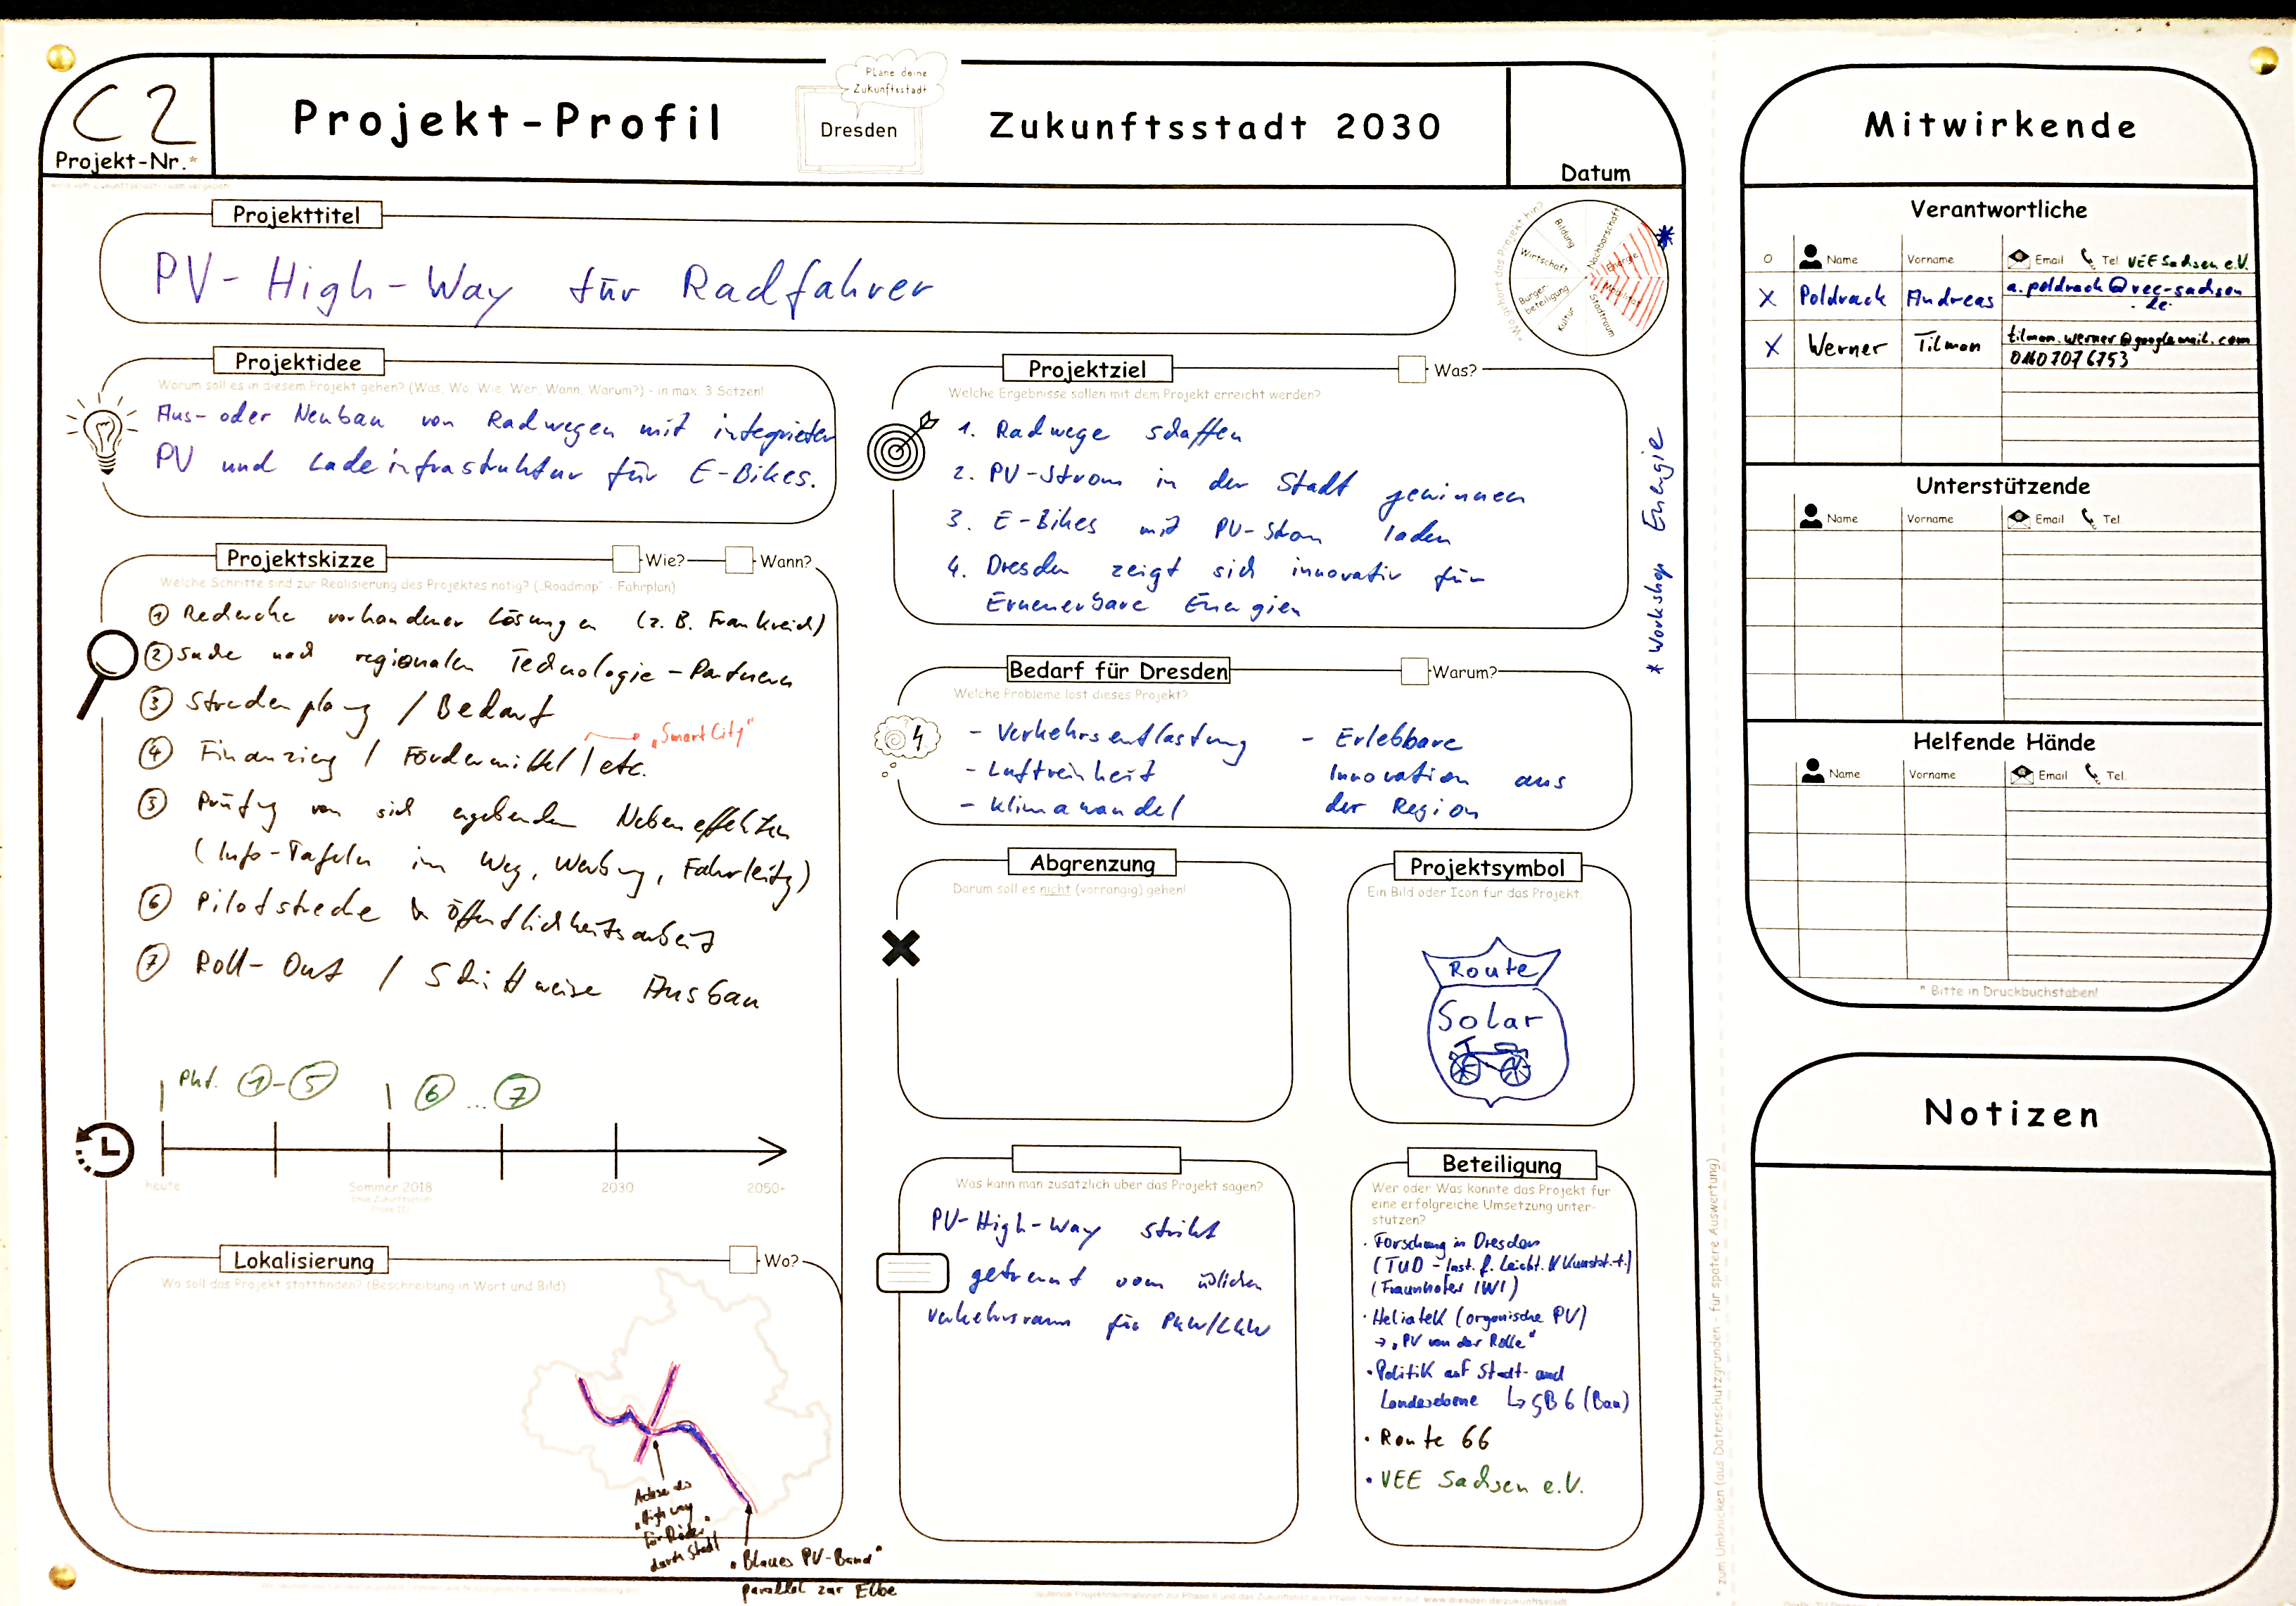 C2
Projekt-Nr.*
Projekt-Profil
Plane deine
Zukunftsstadt
Dresden
Zukunftsstadt 2030
Datum
Projekttitel
PV-High-Way für Radfahrer
Wo gehört das Projekt hin?
Bildung
Nachbarschaft
Wirtschaft
Energie
Bürger-
beteiligung
Mobilität
Kultur
Stadtraum
*
Projektidee
Worum soll es in diesem Projekt gehen? (Was, Wo, Wie, Wer, Wann, Warum?) - in max. 3 Sätzen!
Aus- oder Neubau von Radwegen mit integrierter
PV und Ladeinfrastruktur für E-Bikes.
Projektskizze
Wie?
Wann?
Welche Schritte sind zur Realisierung des Projektes nötig? („Roadmap" - Fahrplan)
① Recherche vorhandener Lösungen (z.B. Frankreich)
② Suche nach regionalen Technologie-Partnern
③ Streckenplanung / Bedarf
④ Finanzierung / Fördermittel / etc.
„Smart City"
⑤ Prüfung von sich ergebenden Nebeneffekten
(Info-Tafeln im Weg, Werbung, Fahrleitg)
⑥ Pilotstrecke & Öffentlichkeitsarbeit
⑦ Roll-Out / Schrittweise Ausbau
Pkt. ①-⑤
⑥ ... ⑦
heute
Sommer 2018
Ende Zukunftsstadt
Phase II
2030
2050+
Lokalisierung
Wo?
Wo soll das Projekt stattfinden? (Beschreibung in Wort und Bild)
Achse des
„High way
für Räder"
durch Stadt
„Blaues PV-Band"
parallel zur Elbe
Projektziel
Was?
Welche Ergebnisse sollen mit dem Projekt erreicht werden?
1. Radwege schaffen
2. PV-Strom in der Stadt gewinnen
3. E-Bikes mit PV-Strom laden
4. Dresden zeigt sich innovativ für
Erneuerbare Energien
* Workshop Energie
Bedarf für Dresden
Warum?
Welche Probleme löst dieses Projekt?
- Verkehrsentlastung
- Luftreinheit
- Klimawandel
- Erlebbare
Innovation aus
der Region
Abgrenzung
Darum soll es nicht (vorrangig) gehen!
Projektsymbol
Ein Bild oder Icon für das Projekt.
Route
Solar
Was kann man zusätzlich über das Projekt sagen?
PV-High-Way strikt
getrennt vom üblichen
Verkehrsraum für PKW/LKW
Beteiligung
Wer oder Was könnte das Projekt für
eine erfolgreiche Umsetzung unter-
stützen?
· Forschung in Dresden
(TUD - Inst. f. Leicht. & Kunstst.t.)
(Fraunhofer IWI)
· Heliatek (organische PV)
→ „PV von der Rolle"
· Politik auf Stadt- und
Landesebene ↳ GB 6 (Bau)
· Route 66
· VEE Sachsen e.V.
* zum Umknicken (aus Datenschutzgründen - für spätere Auswertung)
Mitwirkende
Verantwortliche
Name Vorname Email Tel. VEE Sachsen e.V.
X Poldrack Andreas a.poldrack@vee-sachsen
.de
X Werner Tilman tilman.werner@googlemail.com
01607076753
Unterstützende
Name Vorname Email Tel.
Helfende Hände
Name Vorname Email Tel.
* Bitte in Druckbuchstaben!
Notizen